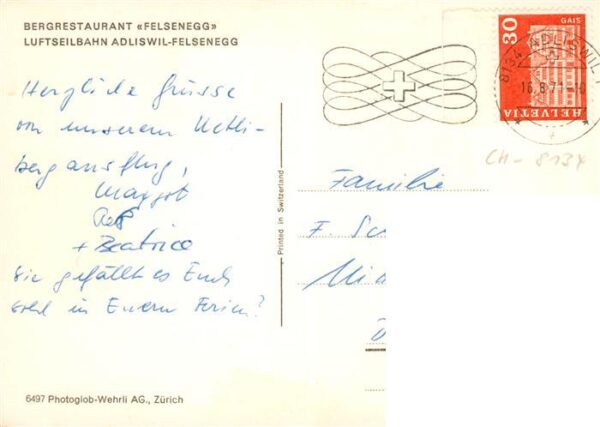 BERGRESTAURANT «FELSENEGG»
LUFTSEILBAHN ADLISWIL-FELSENEGG
Herzliche Grüsse
von unserem Uetli-
bergausflug,
Margot
+ Beatrice
Wie gefällt es Euch
wohl in Euern Ferien?
Printed in Switzerland
6497 Photoglob-Wehrli AG., Zürich
30
GAIS
HELVETIA
8134 ADLISWIL 1
16.8.71-10
CH-8134
Familie
F. Sc